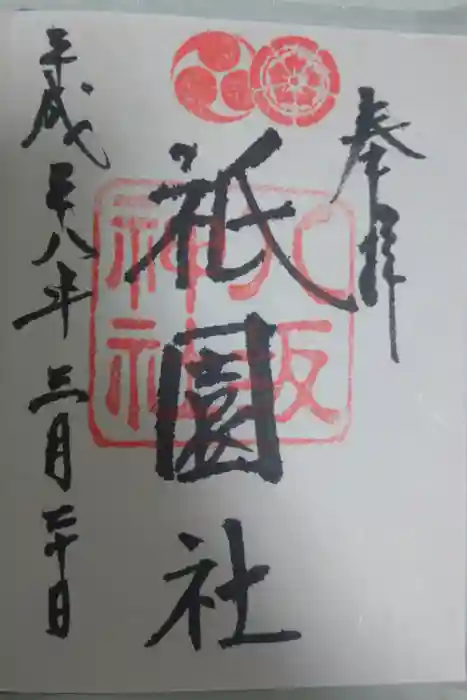 奉拝
八坂
神社
祇園社
平成二十八年三月二十日